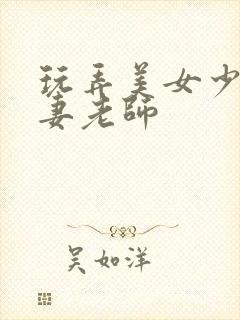 玩弄美女少
妻老师
吴如洋